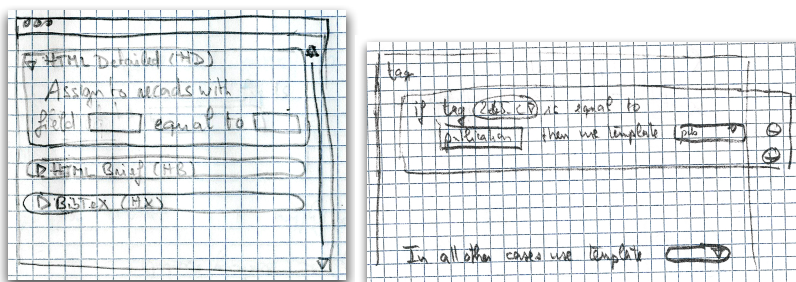 HTML Detailed (HD)
Assign to records with
field equal to
HTML Brief (HB)
BibTeX (HX)
tag
if tag is equal to
publication then use template pub
In all other cases use template